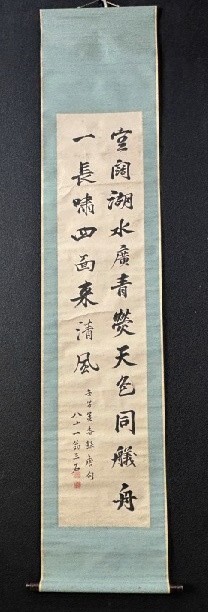 空闊湖水廣青熒天色同艤舟
一長嘯四面来清風
八十一翁三石